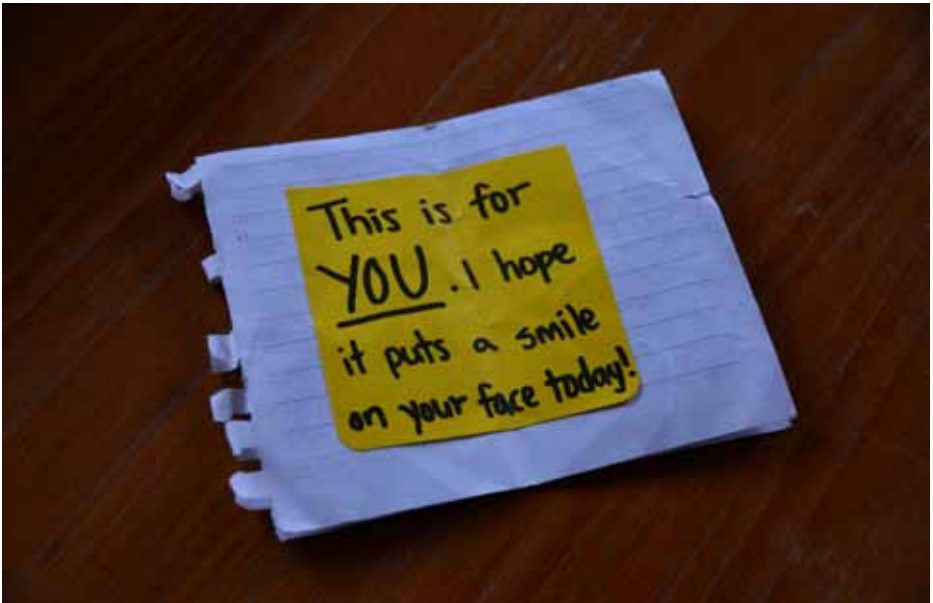 This is for
YOU. I hope
it puts a smile
on your face today!